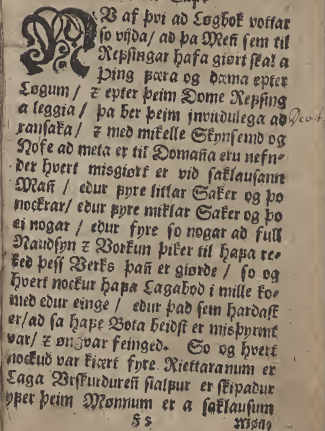 NU af þvi ad Løgbok vottar
so vijda/ ad þa Meñ sem til
Refsingar hafa giørt skal a
Þing færa og dæma epter
Løgum/ ⁊ epter þeim Dome Refsing
a leggia/ þa ber þeim jnvirdulega ad
ransaka/ ⁊ med mikelle Skynsemd og
Hofe ad meta er til Domaña eru nefn-
der hvert misgiørt er vid saklausann
Mañ/ edur fyre litlar Saker og þo
nockrar/ edur fyre miklar Saker og þo
ei nogar/ edur fyre so nogar ad full
Naudsyn ⁊ Vorkun þiker til hafa re-
ked þess Verks þañ er giørde/ so og
hvert nockur hafa Lagabod i mille ko-
med edur einge/ edur þad sem hardast
er/ad sa hafe Bota beidst er misþyrmt
var/ ⁊ øngvar feinged. So og hvert
nockud var kiært fyre Riettaranum er
Laga Vrskurdureñ sialfur er skipadur
yfer þeim Mønnum er a saklausum
§ 5 Møn-